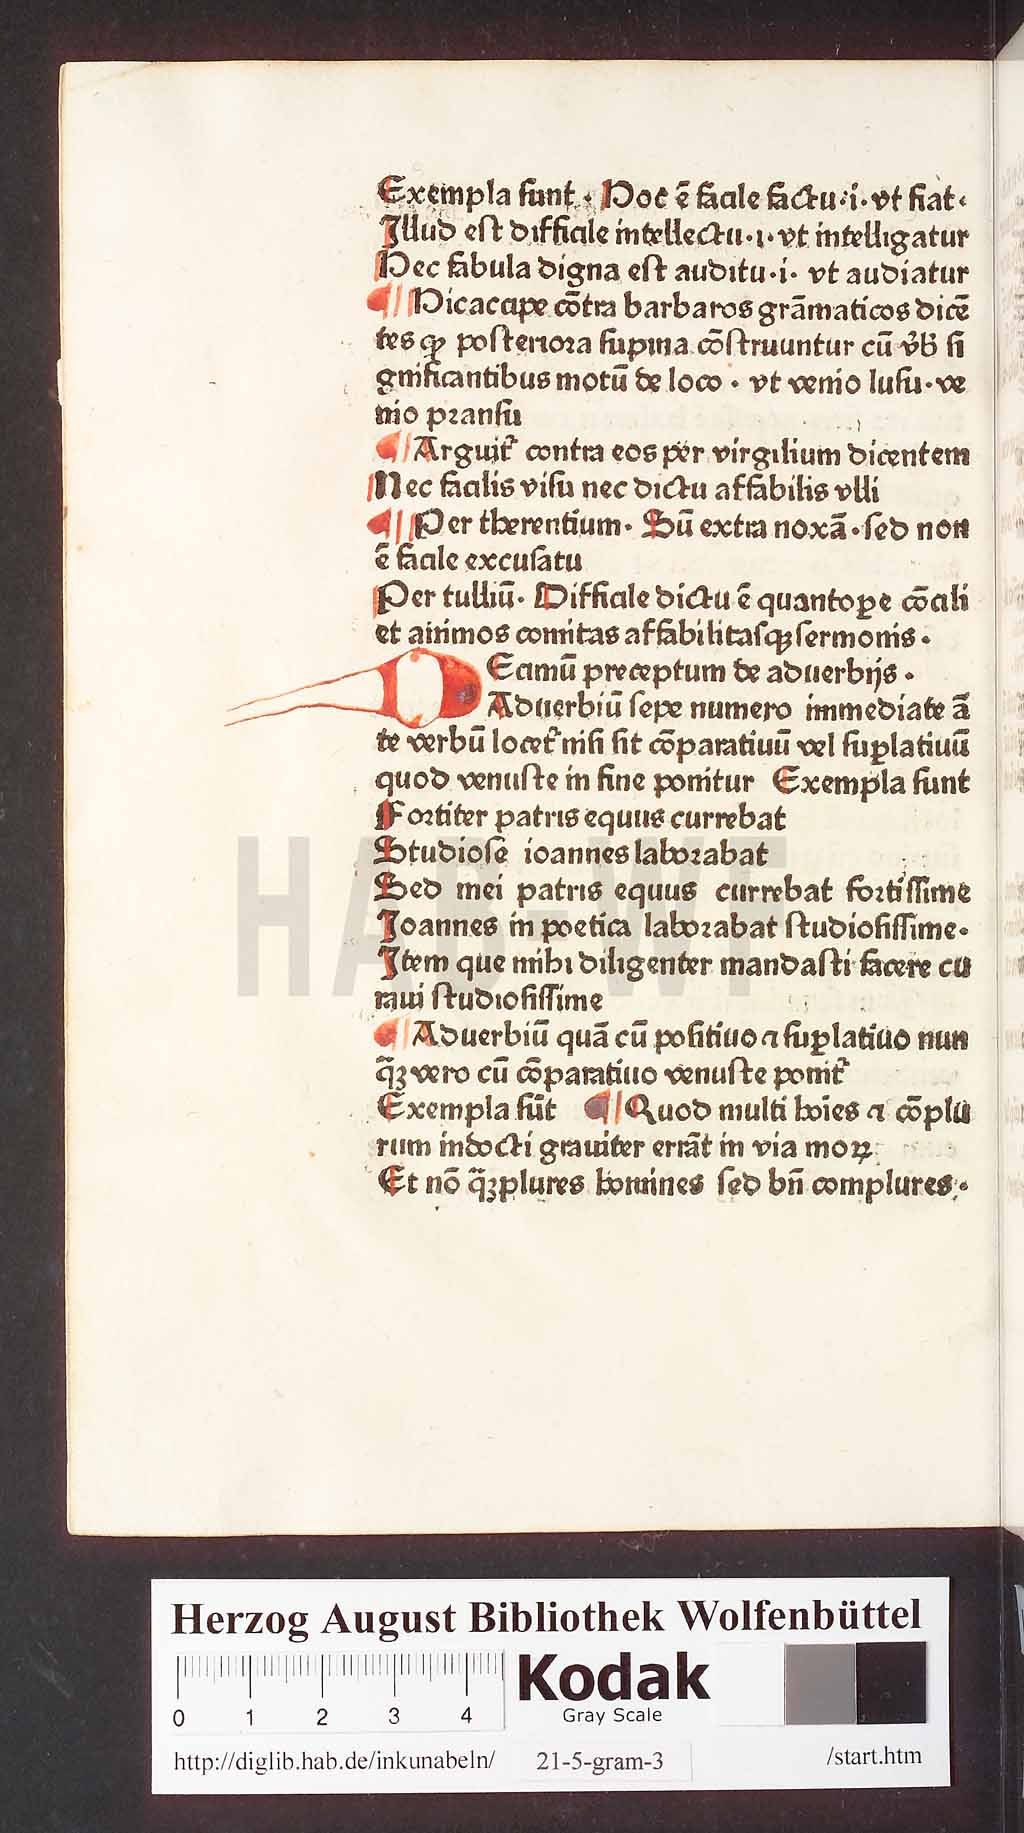 Exempla sunt . Hoc ē facile factu·i· vt fiat·
Illud est difficile intellectu·i·vt intelligatur
Hec fabula digna est auditu·i· vt audiatur
¶ Hic acape cōtra barbaros grāmaticos dicē
tes qꝫ posteriora supina cōstruuntur cū v̓b si
gnificantibus motū de loco · vt venio lusu·ve
nio pransu
¶ Arguit᷑ contra eos per virgilium dicentem
Nec facilis visu nec dictu affabilis vlli
¶ Per therentium· Sū extra noxā·sed non
ē facile excusatu
Per tulliū· Difficile dictu ē quantoꝑe cōcili
et animos comitas affabilitasqꝫ sermonis·
Ecimū preceptum de aduerbijs ·
Aduerbiū sepe numero immediate ā
te verbū locet᷑ nisi sit cōparatiuū vel suꝑlatiuū
quod venuste in fine ponitur Exempla sunt
Fortiter patris equus currebat
Studiose ioannes laborabat
Sed mei patris equus currebat fortissime
Joannes in poetica laborabat studiosissime·
Item que mihi diligenter mandasti facere cu
raui studiosissime
¶ Aduerbiū quā cū positiuo ⁊ suꝑlatiuo nun
q̄ꝫ vero cū cōparatiuo venuste ponit᷑
Exempla sūt ¶ Quod multi hoīes ⁊ cōplu
rum indocti grauiter errāt in via moꝝ
Et nō q̄ꝫplures homines sed bn̄ complures·
HAB-WF
Herzog August Bibliothek Wolfenbüttel
0 1 2 3 4
Kodak
Gray Scale
http://diglib.hab.de/inkunabeln/ 21-5-gram-3 /start.htm